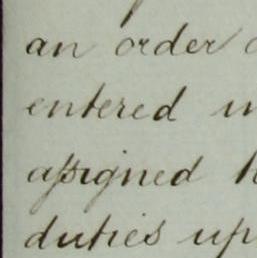 an order
entered
aſsigned
duties